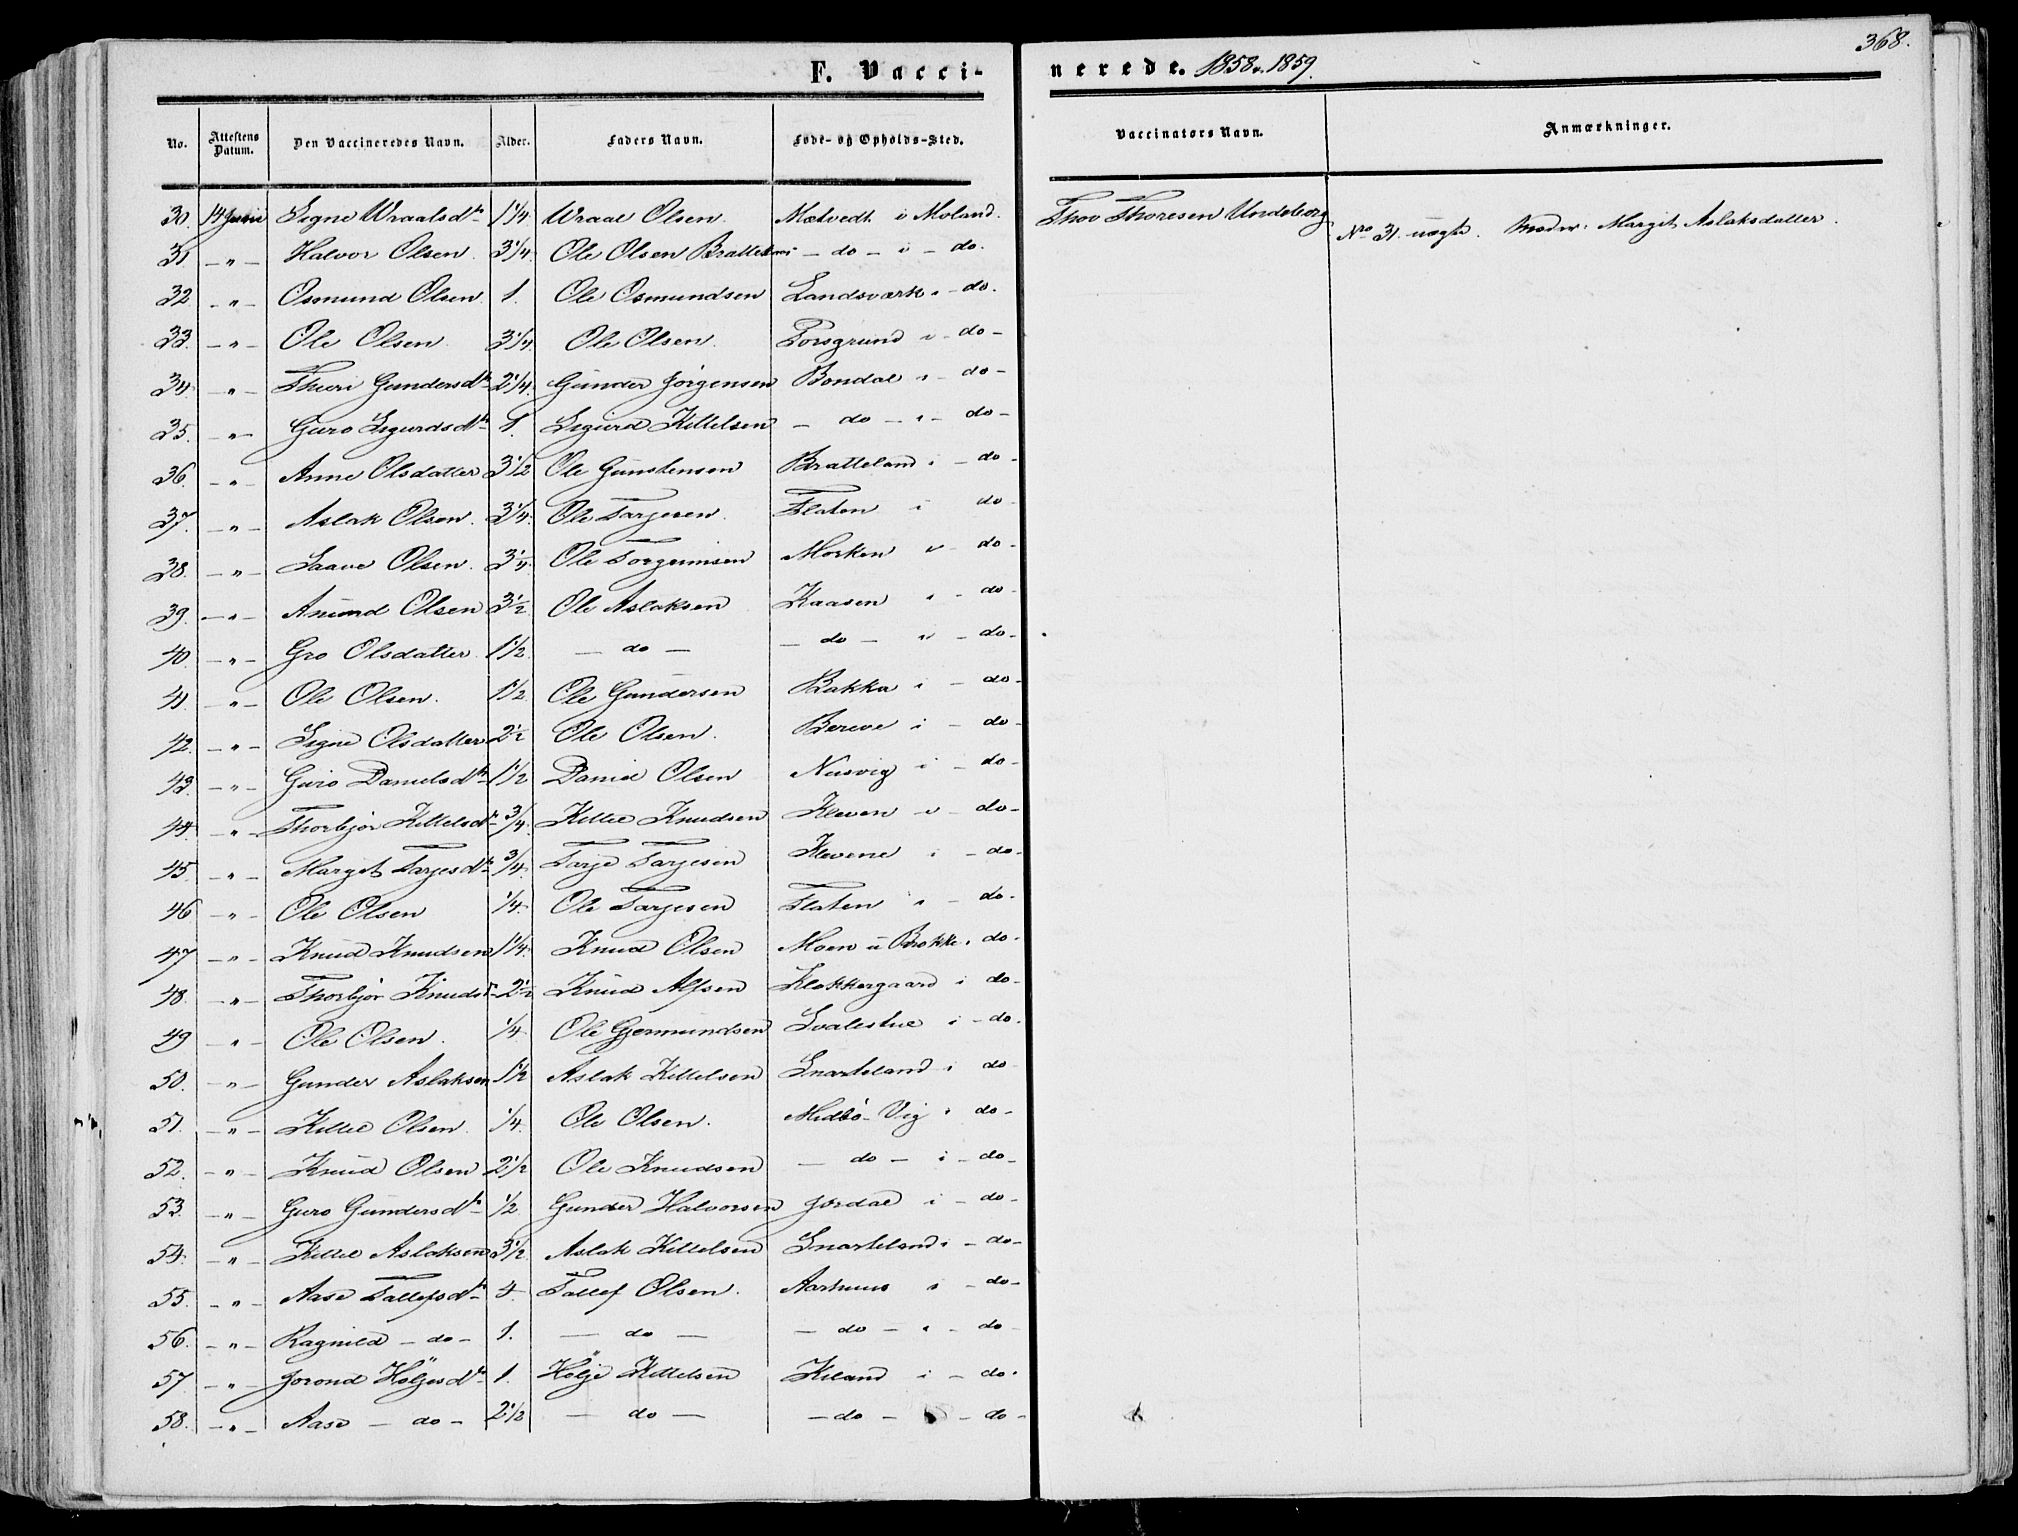 F. Vacci-
nerede. 1858 & 1859.
368.
No. Attestens Datum. Den Vaccineredes Navn. Alder. Faders Navn. Føde- og Opholds-Sted. Vaccinators Navn. Anmærkninger.
30. 14 Juni Signe Wraalsdtr 1 1/4 Wraal Olsen Mætvedt i Moland. Thov Thoresen Undeborg
31 - " - Halvor Olsen. 3 1/4 Ole Olsen - do - i - do. No 31. uægte. Moder: Margit Aslaksdatter.
32 - " - Osmund Olsen 1. Ole Osmundsen Landsværk i - do.
33. - " - Ole Olsen 3 1/4. Ole Olsen. Porsgrund i - do -
34. - " - Thuri Gundersdtr 2 1/4. Gunder Jörgensen Bondal i - do -
35. - " - Guro Sigurdsdtr 1. Sigurd Kittelsen - do - i - do -
36. - " - Anne Olsdatter 3 1/2 Ole Gunstensen Bratteland i - do -
37. - " - Aslak Olsen. 3 1/4. Ole Tarjesen. Flaten i do
38. - " - Saave Olsen. 3 1/4. Ole Torgrimsen Morken i - do -
39. - " - Anund Olsen 3 1/2 Ole Aslaksen Kaasen i - do -
40. - " - Gro Olsdatter 1 1/2. - do - - do - i - do -
41. - " - Ole Olsen. 1 1/2 Ole Gundersen Bakka i - do -
42. - " - Signe Olsdatter 2 1/2 Ole Olsen. Bereve i - do -
43. - " - Guro Danielsdtr 1 1/2 Daniel Olsen Nesvig i - do -
44. - " - Thorbjør Kittelsdtr 3/4. Kittel Knudsen Kleven i - do -
45. - " - Margit Tarjesdtr 3/4. Tarje Tarjesen Klevene i - do -
46 - " - Ole Olsen 1/4. Ole Tarjesen Flaten i - do -
47 - " - Knud Knudsen 1 1/4. Knud Olsen Moen u Brokke i do -
48. - " - Thorbjør Knudsd 2 1/2 Knud Alfsen Klokkergaard i do -
49 - " - Ole Olsen. 1/4. Ole Gjermundsen Svalestue i - do.
50. - " - Gunder Aslaksen 1 1/2 Aslak Kittelsen Snarteland i do
51. - " - Kittel Olsen. 1/4. Ole Olsen. Midbö-Vig i do -
52. - " - Knud Olsen 2 1/2 Ole Knudsen - do - i - do -
53. - " - Guro Gundersdtr 1/2. Gunder Halvorsen Jordal i - do -
54. - " - Kittel Aslaksen 3 1/2. Aslak Kittelsen Snarteland i - do -
55. - " - Aase Tallefsdtr 4. Tallef Olsen. Aarhuus i - do -
56. - " - Ragnild - do - 1. - do - - do - i - do
57. - " - Jorond Höljesdtr 1. Hölje Kittelsen Kiland i - do.
58. - " - Aase - do - 2 1/2 - do - - do - - do -